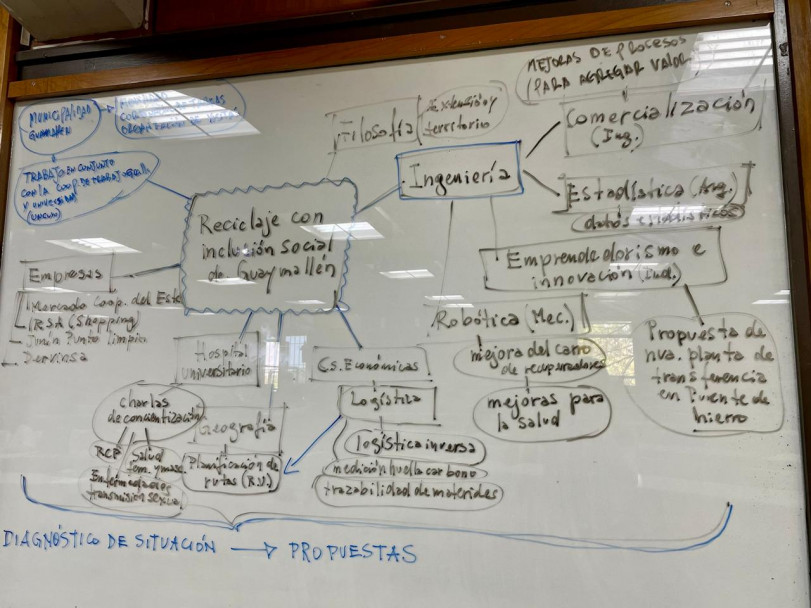 MUNICIPALIDAD
GUAYMALLÉN
TRABAJO EN CONJUNTO
CON LA COOP. DE TRABAJO
Y UNIVERSIDAD
(UNCUYO)
Reciclaje con
inclusión social
de Guaymallén
Empresas
Mercado Coop. del Este
IRSA (Shopping)
Junín Punto Limpio
Dervinsa
Filosofía
extensión y
territorio
Ingeniería
MEJORAS DE PROCESOS
(PARA AGREGAR VALOR)
Comercialización
(Ing.)
Estadística
datos estadísticos
Emprendedorismo e
innovación (Ind.)
Propuesta de
nva. planta de
transferencia
en Puente de
hierro
Robótica (Mec.)
mejora del carro
de recuperadores
mejoras para
la salud
Hospital
universitario
charlas
de concientización
RCP
Salud
fem. y masc.
Enfermedades
transmisión sexual
Geografía
Planificación de
rutas (R.U.)
Cs. Económicas
Logística
logística inversa
medición huella carbono
trazabilidad de materiales
DIAGNÓSTICO DE SITUACIÓN → PROPUESTAS